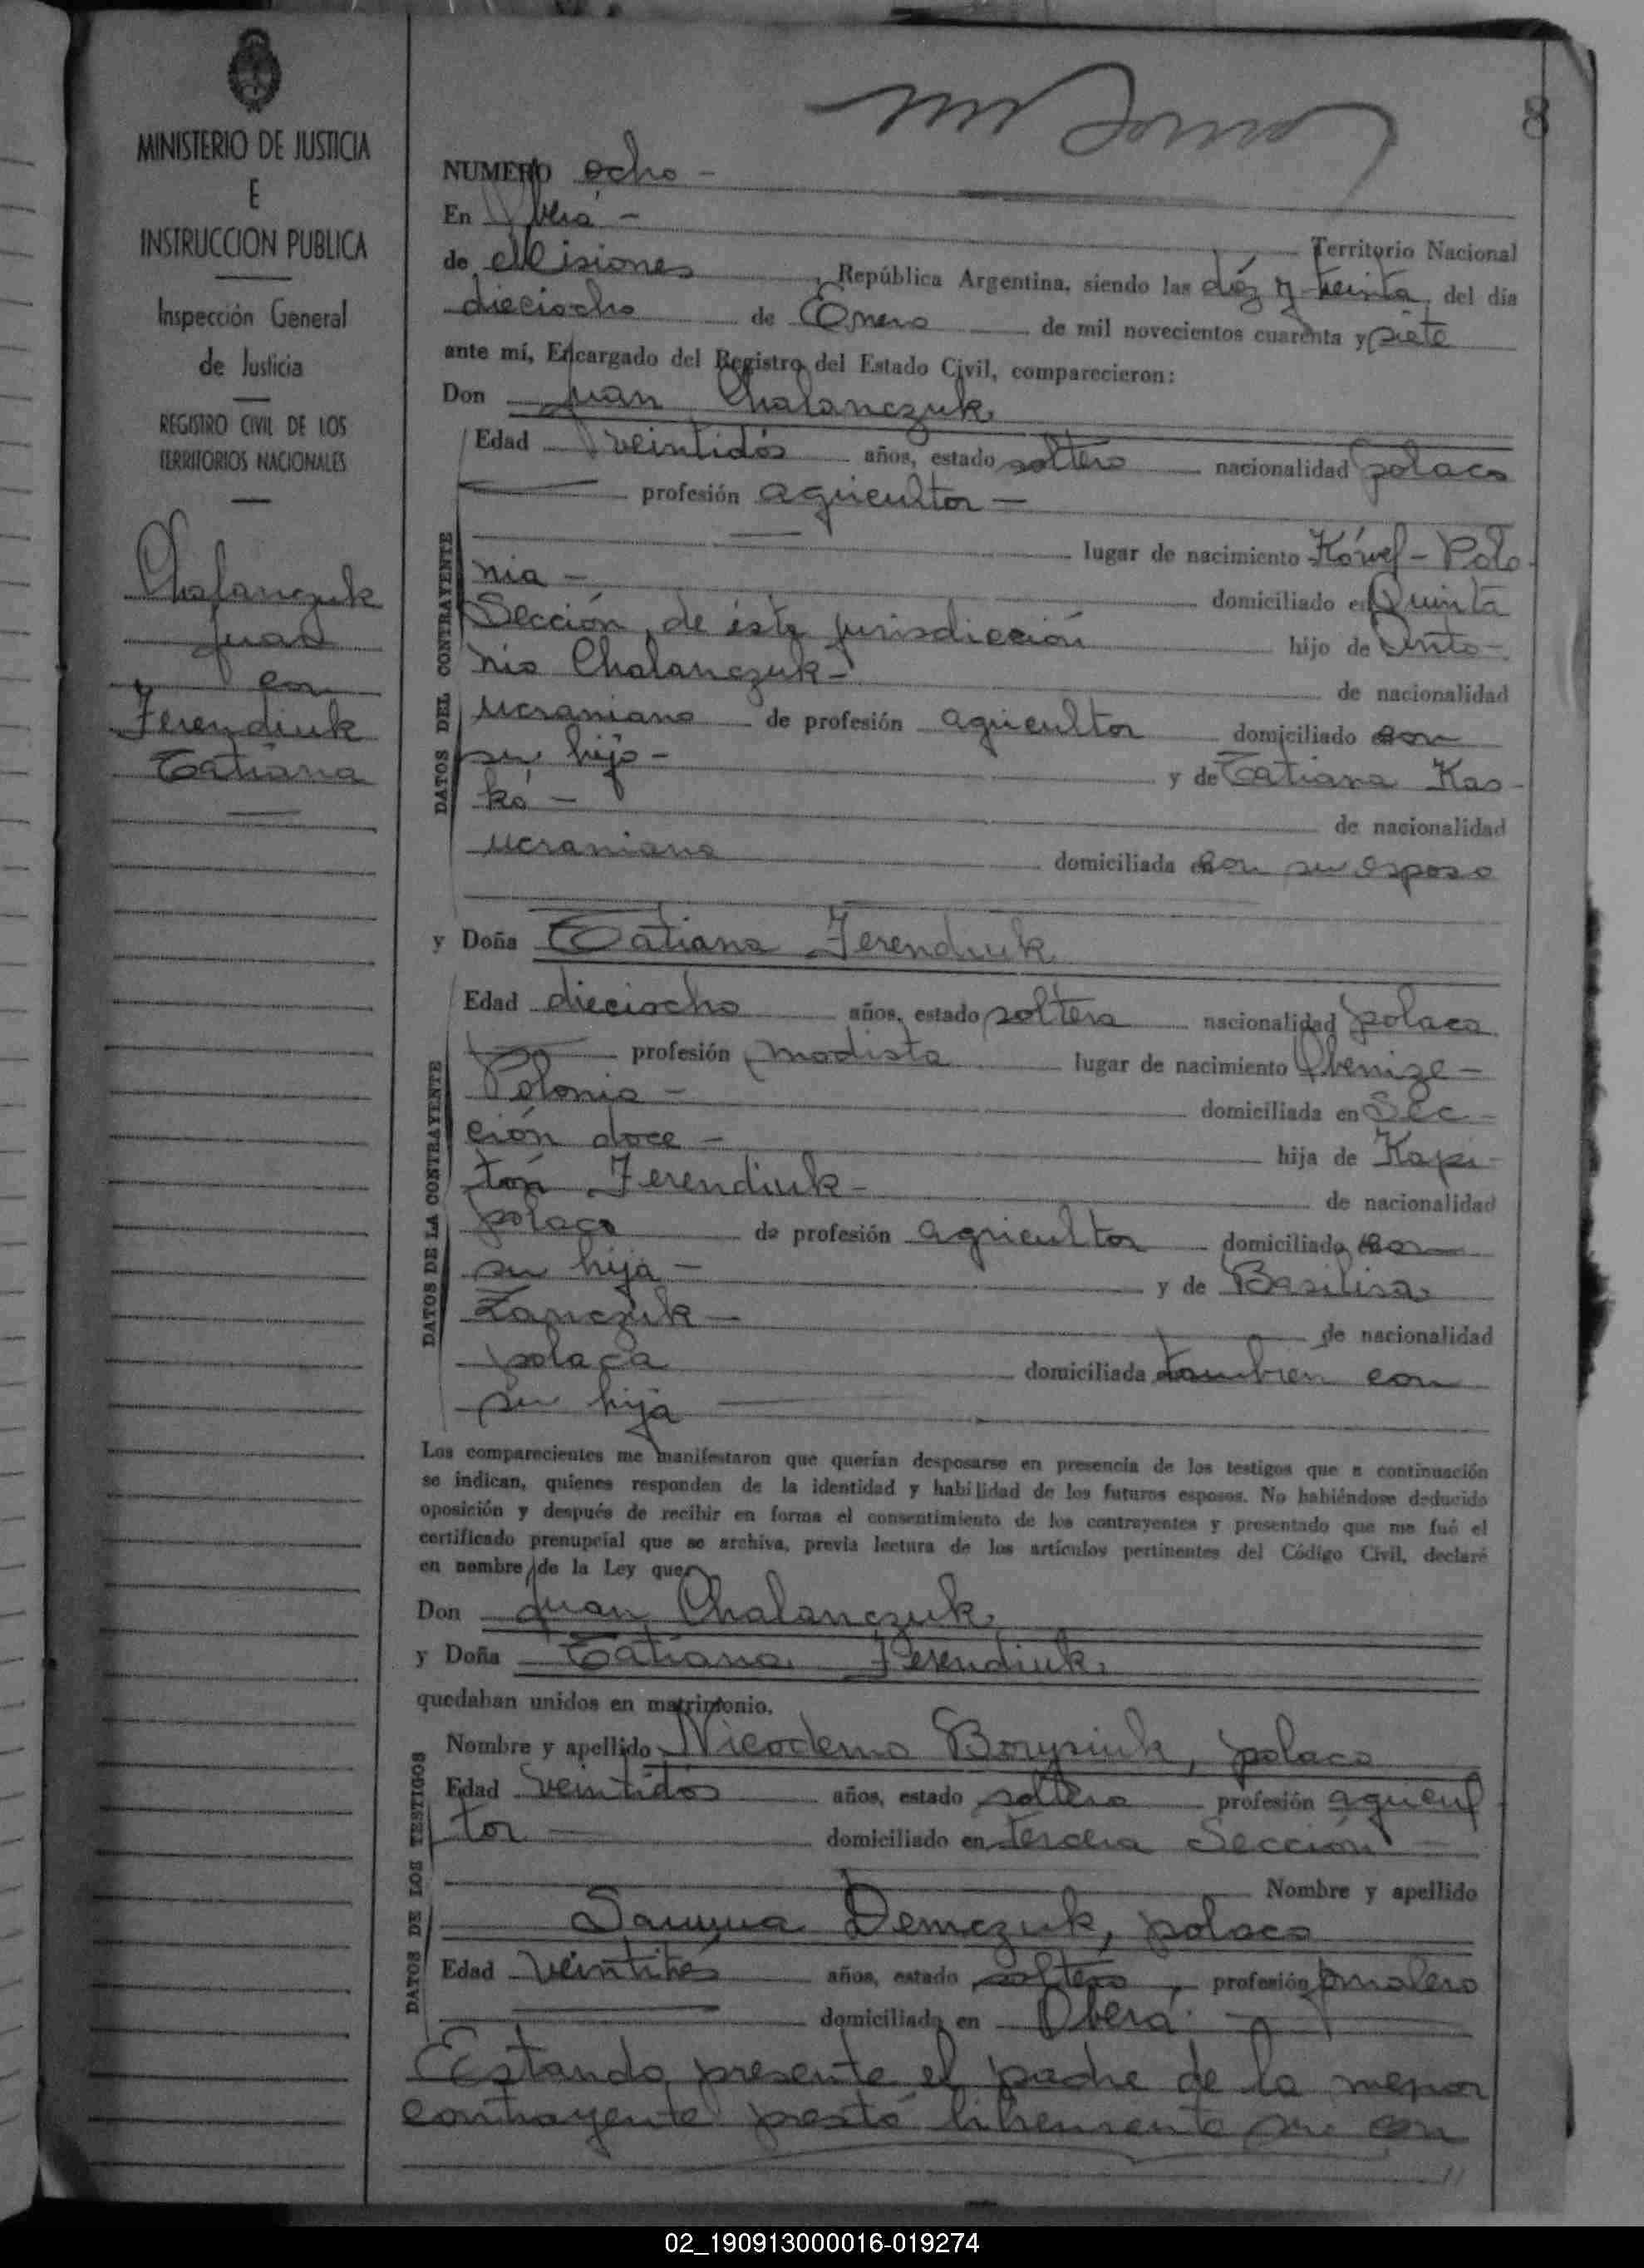 8
MINISTERIO DE JUSTICIA
E
INSTRUCCION PUBLICA
Inspección General
de Justicia
REGISTRO CIVIL DE LOS
TERRITORIOS NACIONALES
Chalanczuk
Juan
con
Ferendiuk
Tatiana
NUMERO ocho -
En Oberá - Territorio Nacional
de Misiones, República Argentina, siendo las diéz y treinta, del día
dieciocho de Enero de mil novecientos cuarenta y siete
ante mí, Encargado del Registro del Estado Civil, comparecieron:
Don Juan Chalanczuk
DATOS DEL CONTRAYENTE
Edad veintidós años, estado soltero nacionalidad polaco
profesión agricultor -
lugar de nacimiento Kówel - Polo-
nia - domiciliado en Quinta
Sección, de ésta jurisdicción hijo de Anto-
nio Chalanczuk - de nacionalidad
ucraniano de profesión agricultor domiciliado con
su hijo - y de Tatiana Kas-
kó - de nacionalidad
ucraniana domiciliada con su esposo
y Doña Tatiana Ferendiuk
DATOS DE LA CONTRAYENTE
Edad dieciocho años, estado soltera nacionalidad polaca
profesión modista lugar de nacimiento
Polonia - domiciliada en Sec-
ción doce - hija de Kapi-
tón Ferendiuk - de nacionalidad
polaco de profesión agricultor domiciliado con
su hija - y de Basilisa
Zanczuk - de nacionalidad
polaca domiciliada también con
su hija
Los comparecientes me manifestaron que querían desposarse en presencia de los testigos que a continuación
se indican, quienes responden de la identidad y habilidad de los futuros esposos. No habiéndose deducido
oposición y después de recibir en forma el consentimiento de los contrayentes y presentado que me fué el
certificado prenupcial que se archiva, previa lectura de los artículos pertinentes del Código Civil, declaré
en nombre de la Ley que
Don Juan Chalanczuk
y Doña Tatiana Ferendiuk
quedaban unidos en matrimonio.
DATOS DE LOS TESTIGOS
Nombre y apellido Nicodemo Borysiuk, polaco
Edad veintidós años, estado soltero profesión agricul
tor domiciliado en tercera Sección -
Nombre y apellido
Demczuk, polaco
Edad veintitrés años, estado soltero, profesión jornalero
domiciliado en Oberá.
Estando presente el padre de la menor
contrayente prestó libremente su con
02_190913000016-019274